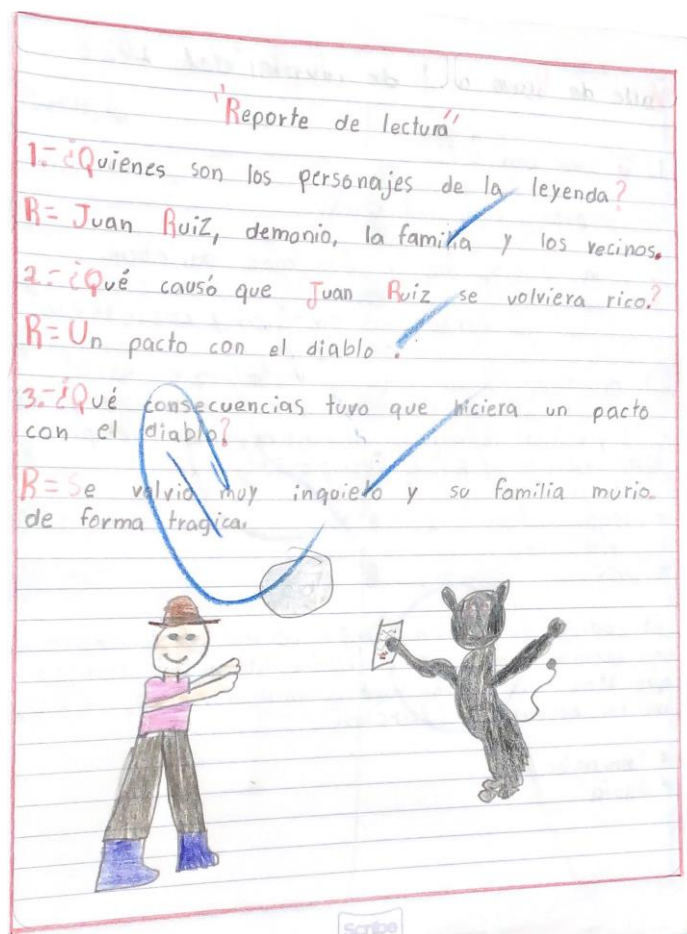 "Reporte de lectura"
1.- ¿Quienes son los personajes de la leyenda?
R= Juan Ruiz, demonio, la familia y los vecinos.
2.- ¿Qué causó que Juan Ruiz se volviera rico.?
R= Un pacto con el diablo.
3.- ¿Qué consecuencias tuvo que hiciera un pacto
con el diablo?
R= Se volvio muy inquieto y su familia murio.
de forma tragica.
Scribe